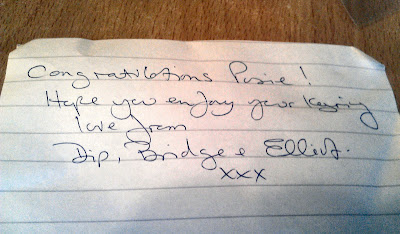 Congratilations Pusie!
Hope you enjoy your keyring
love from
Dip, Bridge & Elliot.
xxx